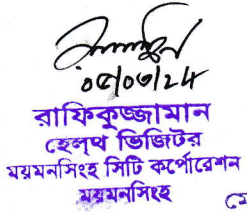 ০৫/০৩/২৪
রাফিকুজ্জামান
হেলথ ভিজিটর
ময়মনসিংহ সিটি কর্পোরেশন
ময়মনসিংহ